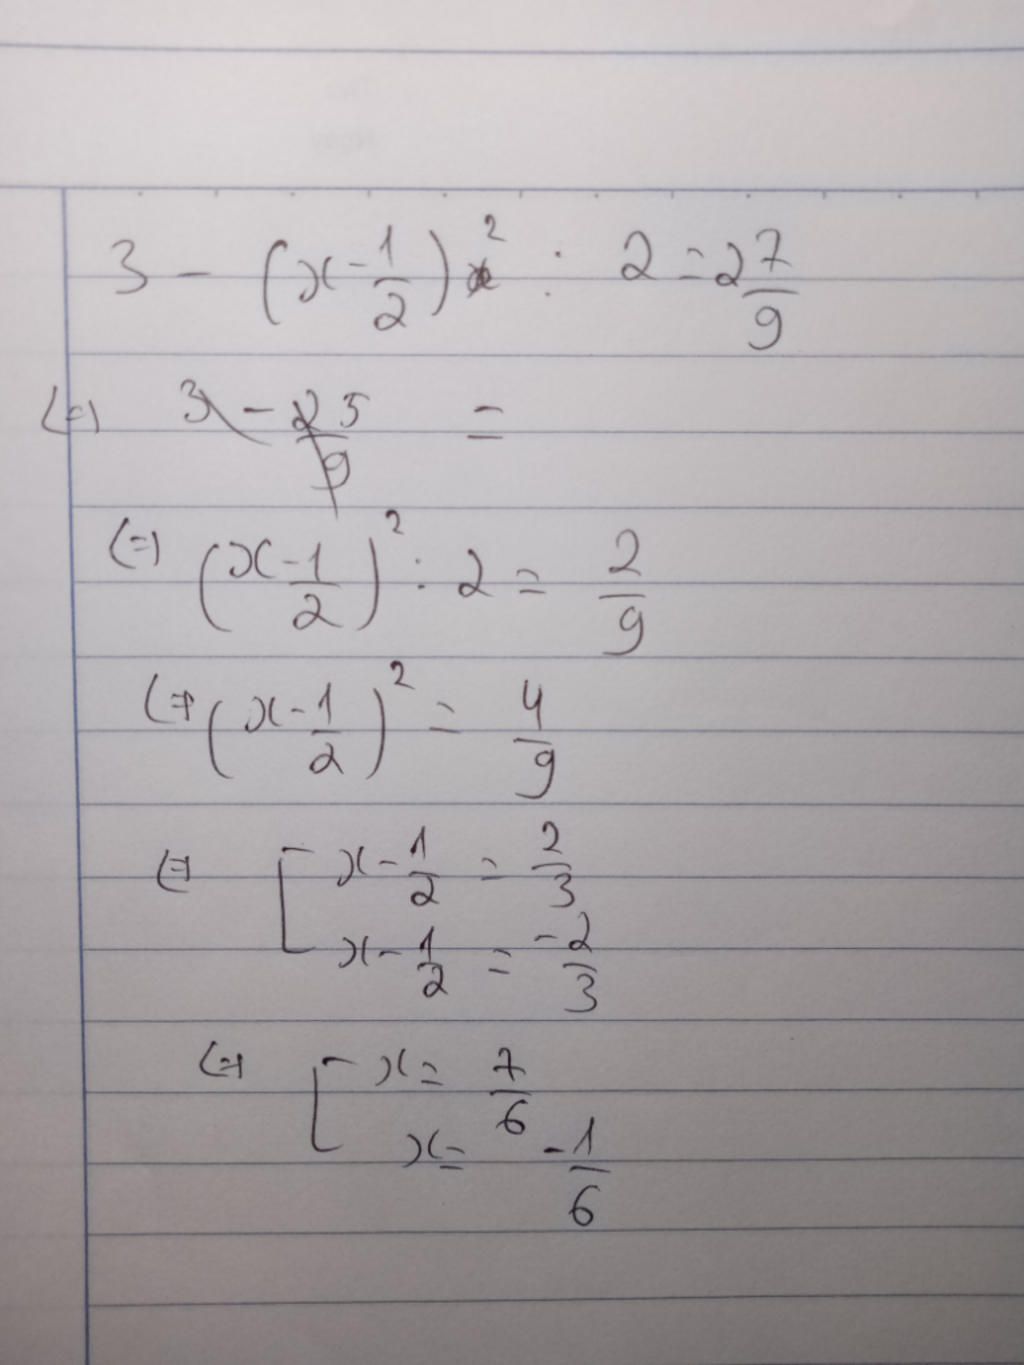 3 - (x - 1/2)² : 2 = 2 7/9
(=) 3 - 25/9 =
(=) (x - 1/2)² : 2 = 2/9
(=) (x - 1/2)² = 4/9
(=) [ x - 1/2 = 2/3
x - 1/2 = -2/3
(=) [ x = 7/6
x = -1/6